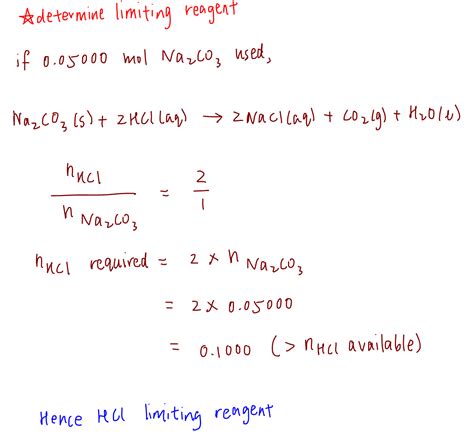 ☆determine limiting reagent
if 0.05000 mol Na₂CO₃ used,
Na₂CO₃(s) + 2HCl(aq) → 2NaCl(aq) + CO₂(g) + H₂O(l)
nHCl / n Na₂CO₃ = 2/1
nHCl required = 2 × n Na₂CO₃
= 2 × 0.05000
= 0.1000 (> nHCl available)
Hence HCl limiting reagent